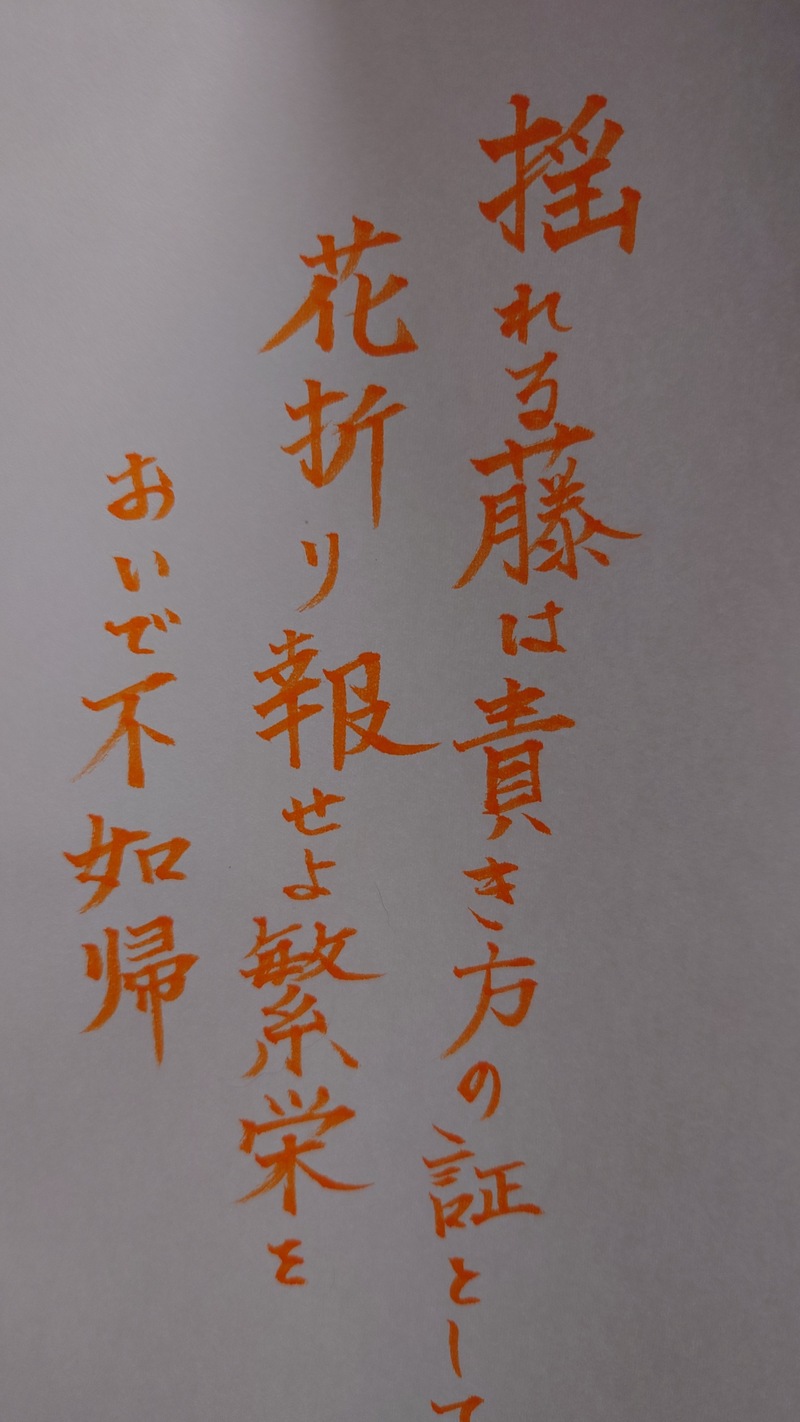 揺れる藤は貴き方の証として
花折り報せよ繁栄を
おいで不如帰